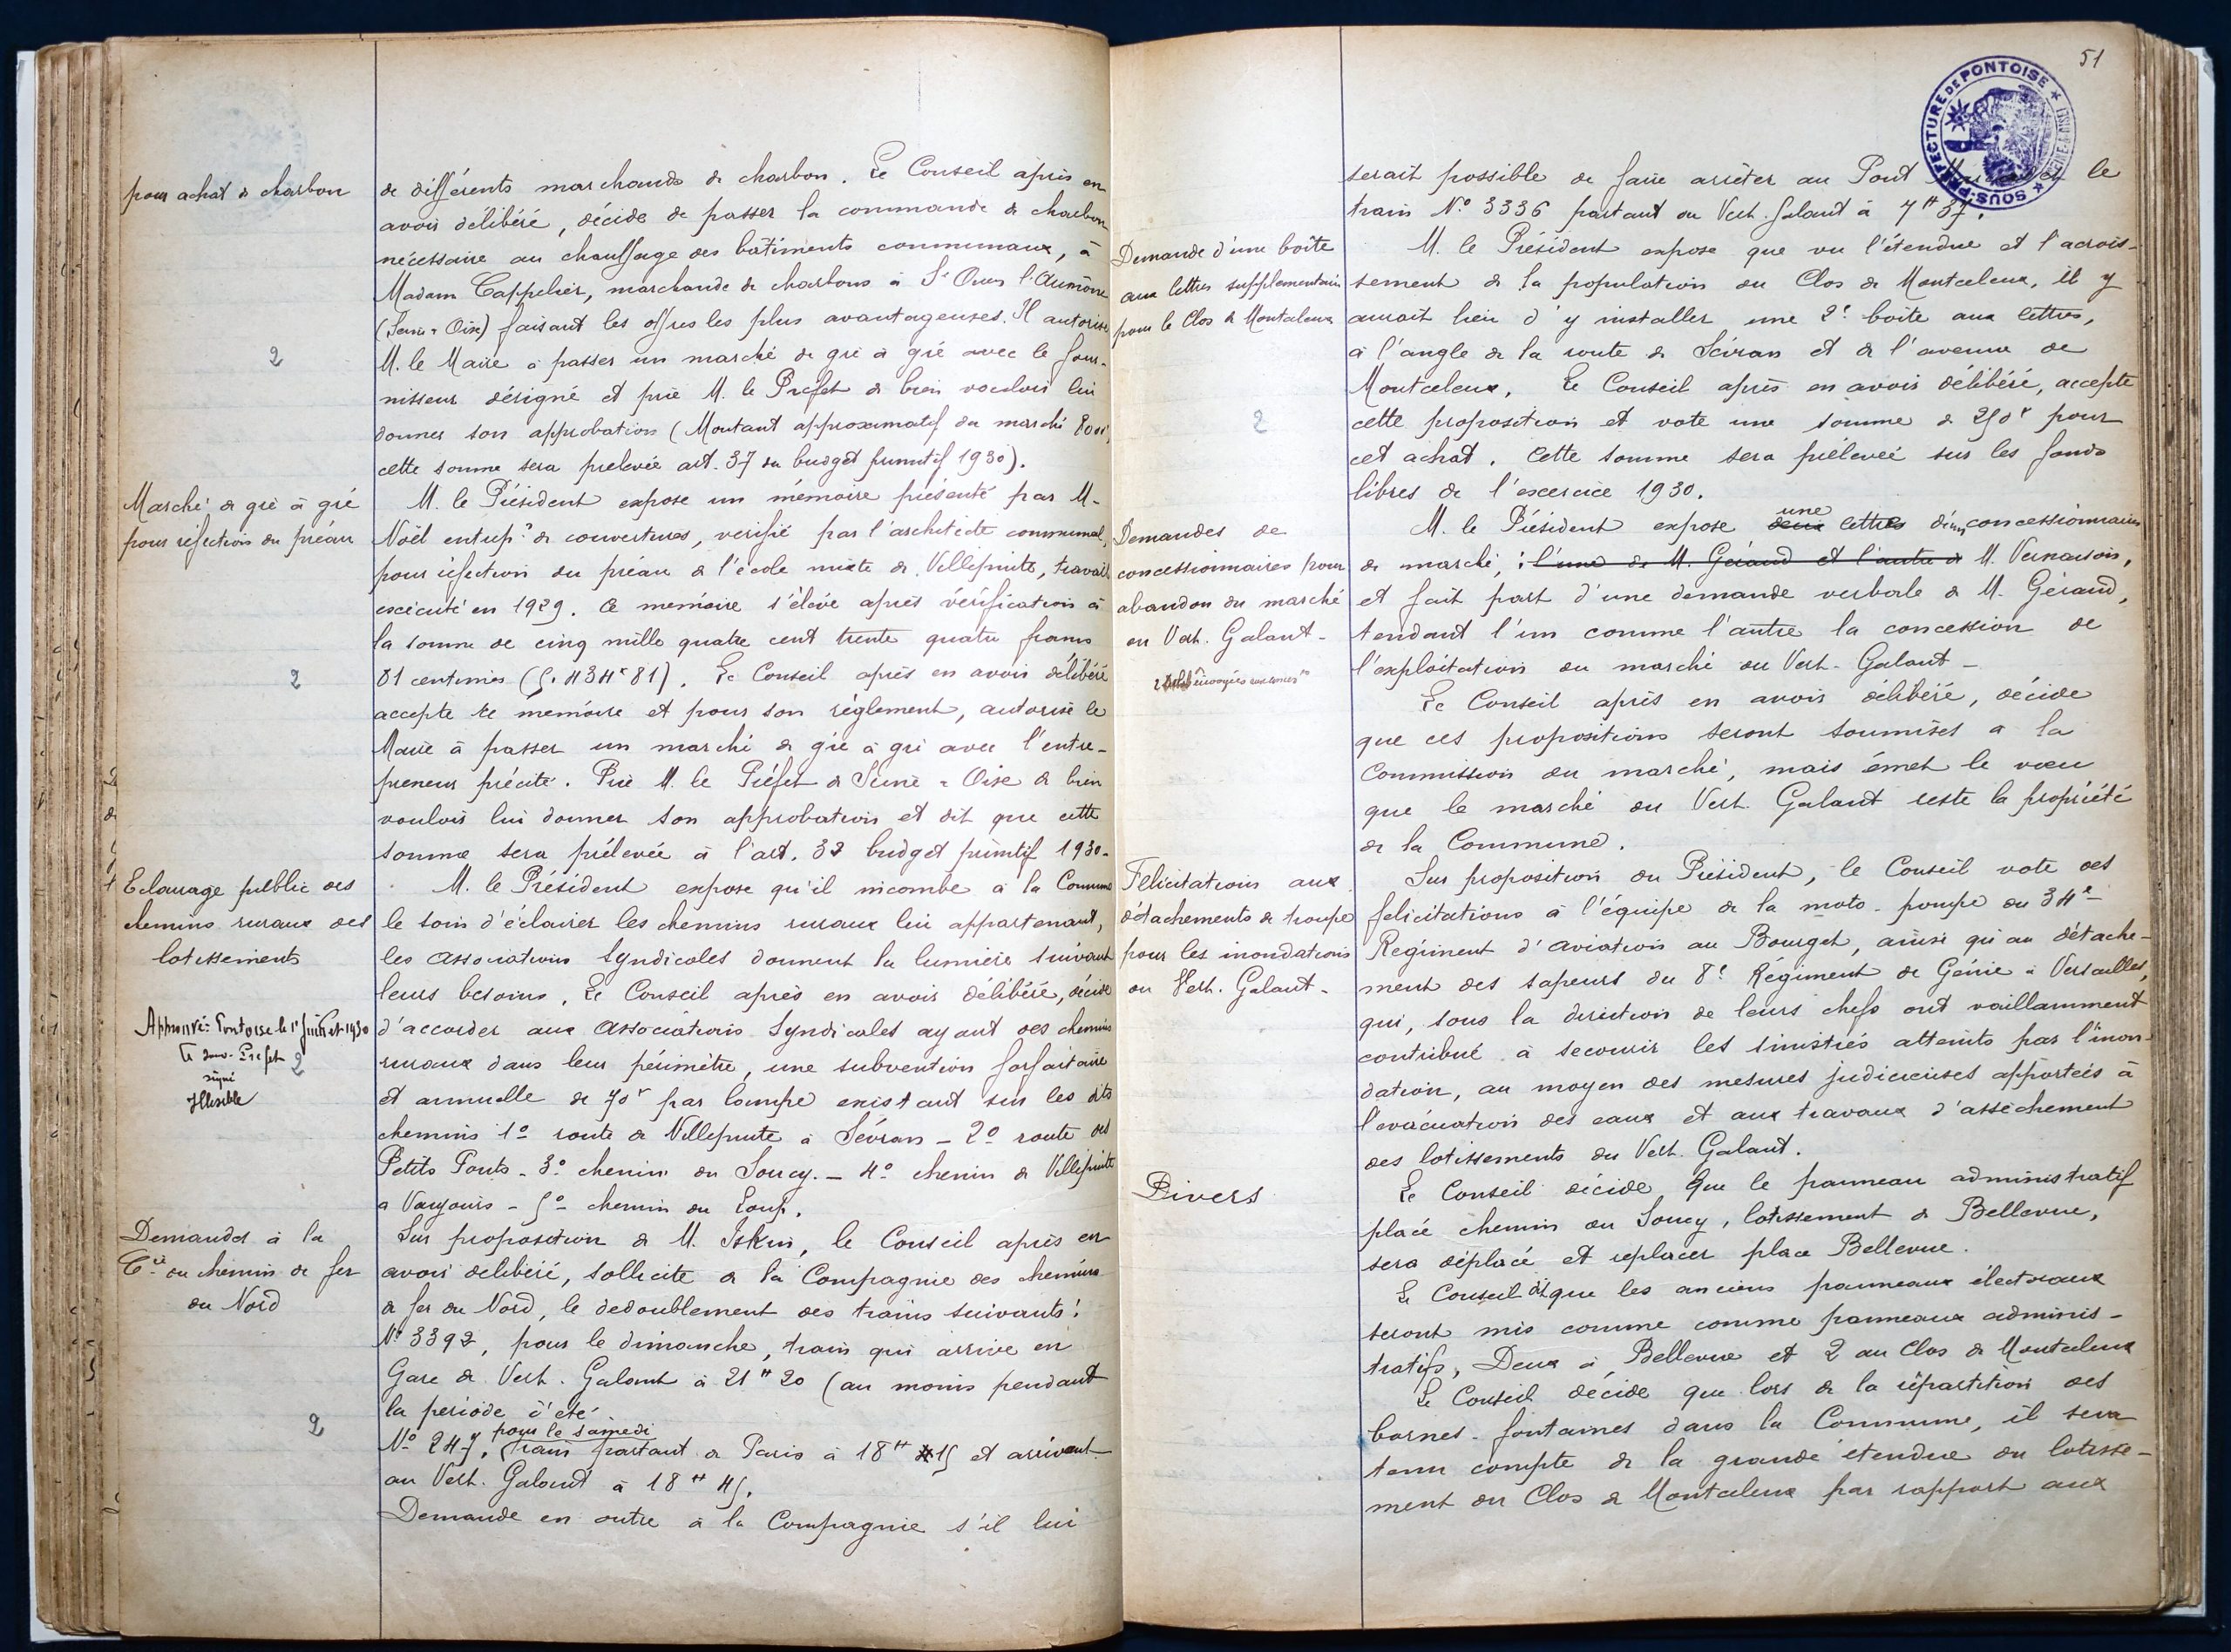 pour achat de charbon
de différents marchands de charbon. Le Conseil après en
avoir délibéré, décide de passer la commande de charbon
nécessaire au chauffage des bâtiments communaux, à
Madam Cappelier, marchande de charbons à St Ouen l'Aumône
(Seine & Oise) faisant les offres les plus avantageuses. Il autorise
M. le Maire à passer un marché de gré à gré avec le four-
2
nisseur désigné et prie M. le Prefet de bien vouloir lui
donner son approbation (Montant approximatif du marché
cette somme sera prelevée art. 37 du budget primitif 1930).
Marché de gré à gré
pour réfection du préau
M. le Président expose un mémoire présenté par M.
Noël entrepr de couvertures, verifié par l'architecte communal,
pour réfection du préau de l'école mixte de Villepinte, travail
excécuté en 1929. Ce memoire s'élève après vérification à
la somme de cinq mille quatre cent trente quatre francs
2
81 centimes (5.434f81). Le Conseil après en avoir délibéré
accepte le memoire et pour son règlement, autorise le
Maire à passer un marché de gré à gré avec l'entre-
preneur précité. Prie M. le Préfet de Seine & Oise de bien
vouloir lui donner son approbation et dit que cette
somme sera prélevée à l'art. 32 budget primitif 1930.
Eclairage public des
chemins ruraux des
lotissements
M. le Président expose qu'il incombe à la Commune
le soin d'éclairer les chemins ruraux lui appartenant,
les associations Syndicales donnent la lumière suivant
leurs besoins. Le Conseil après en avoir délibéré, décide
Approuvé: Pontoise le 1er Juillet 1930
Le Sous-Préfet
signé
Illisible
2
d'accorder aux Associations Syndicales ayant des chemins
ruraux dans leur périmètre, une subvention forfaitaire
et annuelle de 70f par lampe existant sur les dits
chemins 1o route de Villepinte à Sévran - 2o route des
Petits Ponts - 3o chemin du Soucy. - 4o chemin de Villepinte
a Vaujours - 5o chemin du Loup.
Demandes à la
Cie du chemin de fer
du Nord
Sur proposition de M. Iskin, le Conseil après en
avoir delibéré, sollicite de la Compagnie des chemins
de fer du Nord, le dedoublement des trains suivants:
No 3392, pour le dimanche, train qui arrive en
Gare de Vert. Galant à 21H20 (au moins pendant
la periode d'été
2
pour le samedi
No 247, train partant de Paris à 18H 15 et arrivant
au Vert. Galant à 18H 45.
Demande en outre à la Compagnie s'il lui
51
SOUS-PRÉFECTURE DE PONTOISE
serait possible de faire arrêter au Pont le
train No 3336 partant du Vert. Galant à 7H 37.
Demande d'une boîte
aux lettres supplementaire
pour le Clos de Montceleux
M. le Président expose que vu l'étendue et l'acrois-
sement de la population du Clos de Montceleux, il y
aurait lieu d'y installer une 2e boite aux lettres,
à l'angle de la route de Sévran et de l'avenue de
Montceleux. Le Conseil après en avoir délibéré, accepte
2
cette proposition et vote une somme de 250f pour
cet achat. Cette somme sera prélevée sur les fonds
libres de l'excercice 1930.
Demandes de
concessionnaires pour
abandon du marché
du Vert. Galant -
M. le Président expose deux une lettres d'un concessionnaires
de marché, : l'une de M. Gérand et l'autre de M. Vernaisois,
et fait part d'une demande verbale de M. Gérand,
tendant l'un comme l'autre la concession de
l'exploitation du marché du Vert. Galant -
Le Conseil après en avoir délibéré, décide
que ces propositions seront soumises a la
Commission du marché, mais émet le vœu
que le marché du Vert Galant reste la propriété
de la Commune.
Félicitations aux
détachements de troupe
pour les inondations
du Vert. Galant -
Sur proposition du Président, le Conseil vote des
felicitations à l'équipe de la moto-pompe du 34e
Regiment d'aviation au Bourget, ainsi qu'au détache-
ment des sapeurs du 8e Régiment de Génie à Versailles,
qui, sous la direction de leurs chefs ont vaillamment
contribué à secourir les sinistrés atteints par l'inon-
dation, au moyen des mesures judicieuses apportées à
l'evacuation des eaux et aux travaux d'assèchement
des lotissements du Vert. Galant.
Divers
Le Conseil décide que le panneau administratif
placé chemin du Soucy, lotissement de Bellevue,
sera déplacé et replacer place Bellevue.
Le Conseil dit que les anciens panneaux électoraux
seront mis comme comme panneaux adminis-
tratifs, Deux à Bellevue et 2 au Clos de Montceleux
Le Conseil décide que lors de la répartition des
bornes-fontaines dans la Commune, il sera
tenu compte de la grande étendue du lotisse-
ment du Clos de Montceleux par rapport aux